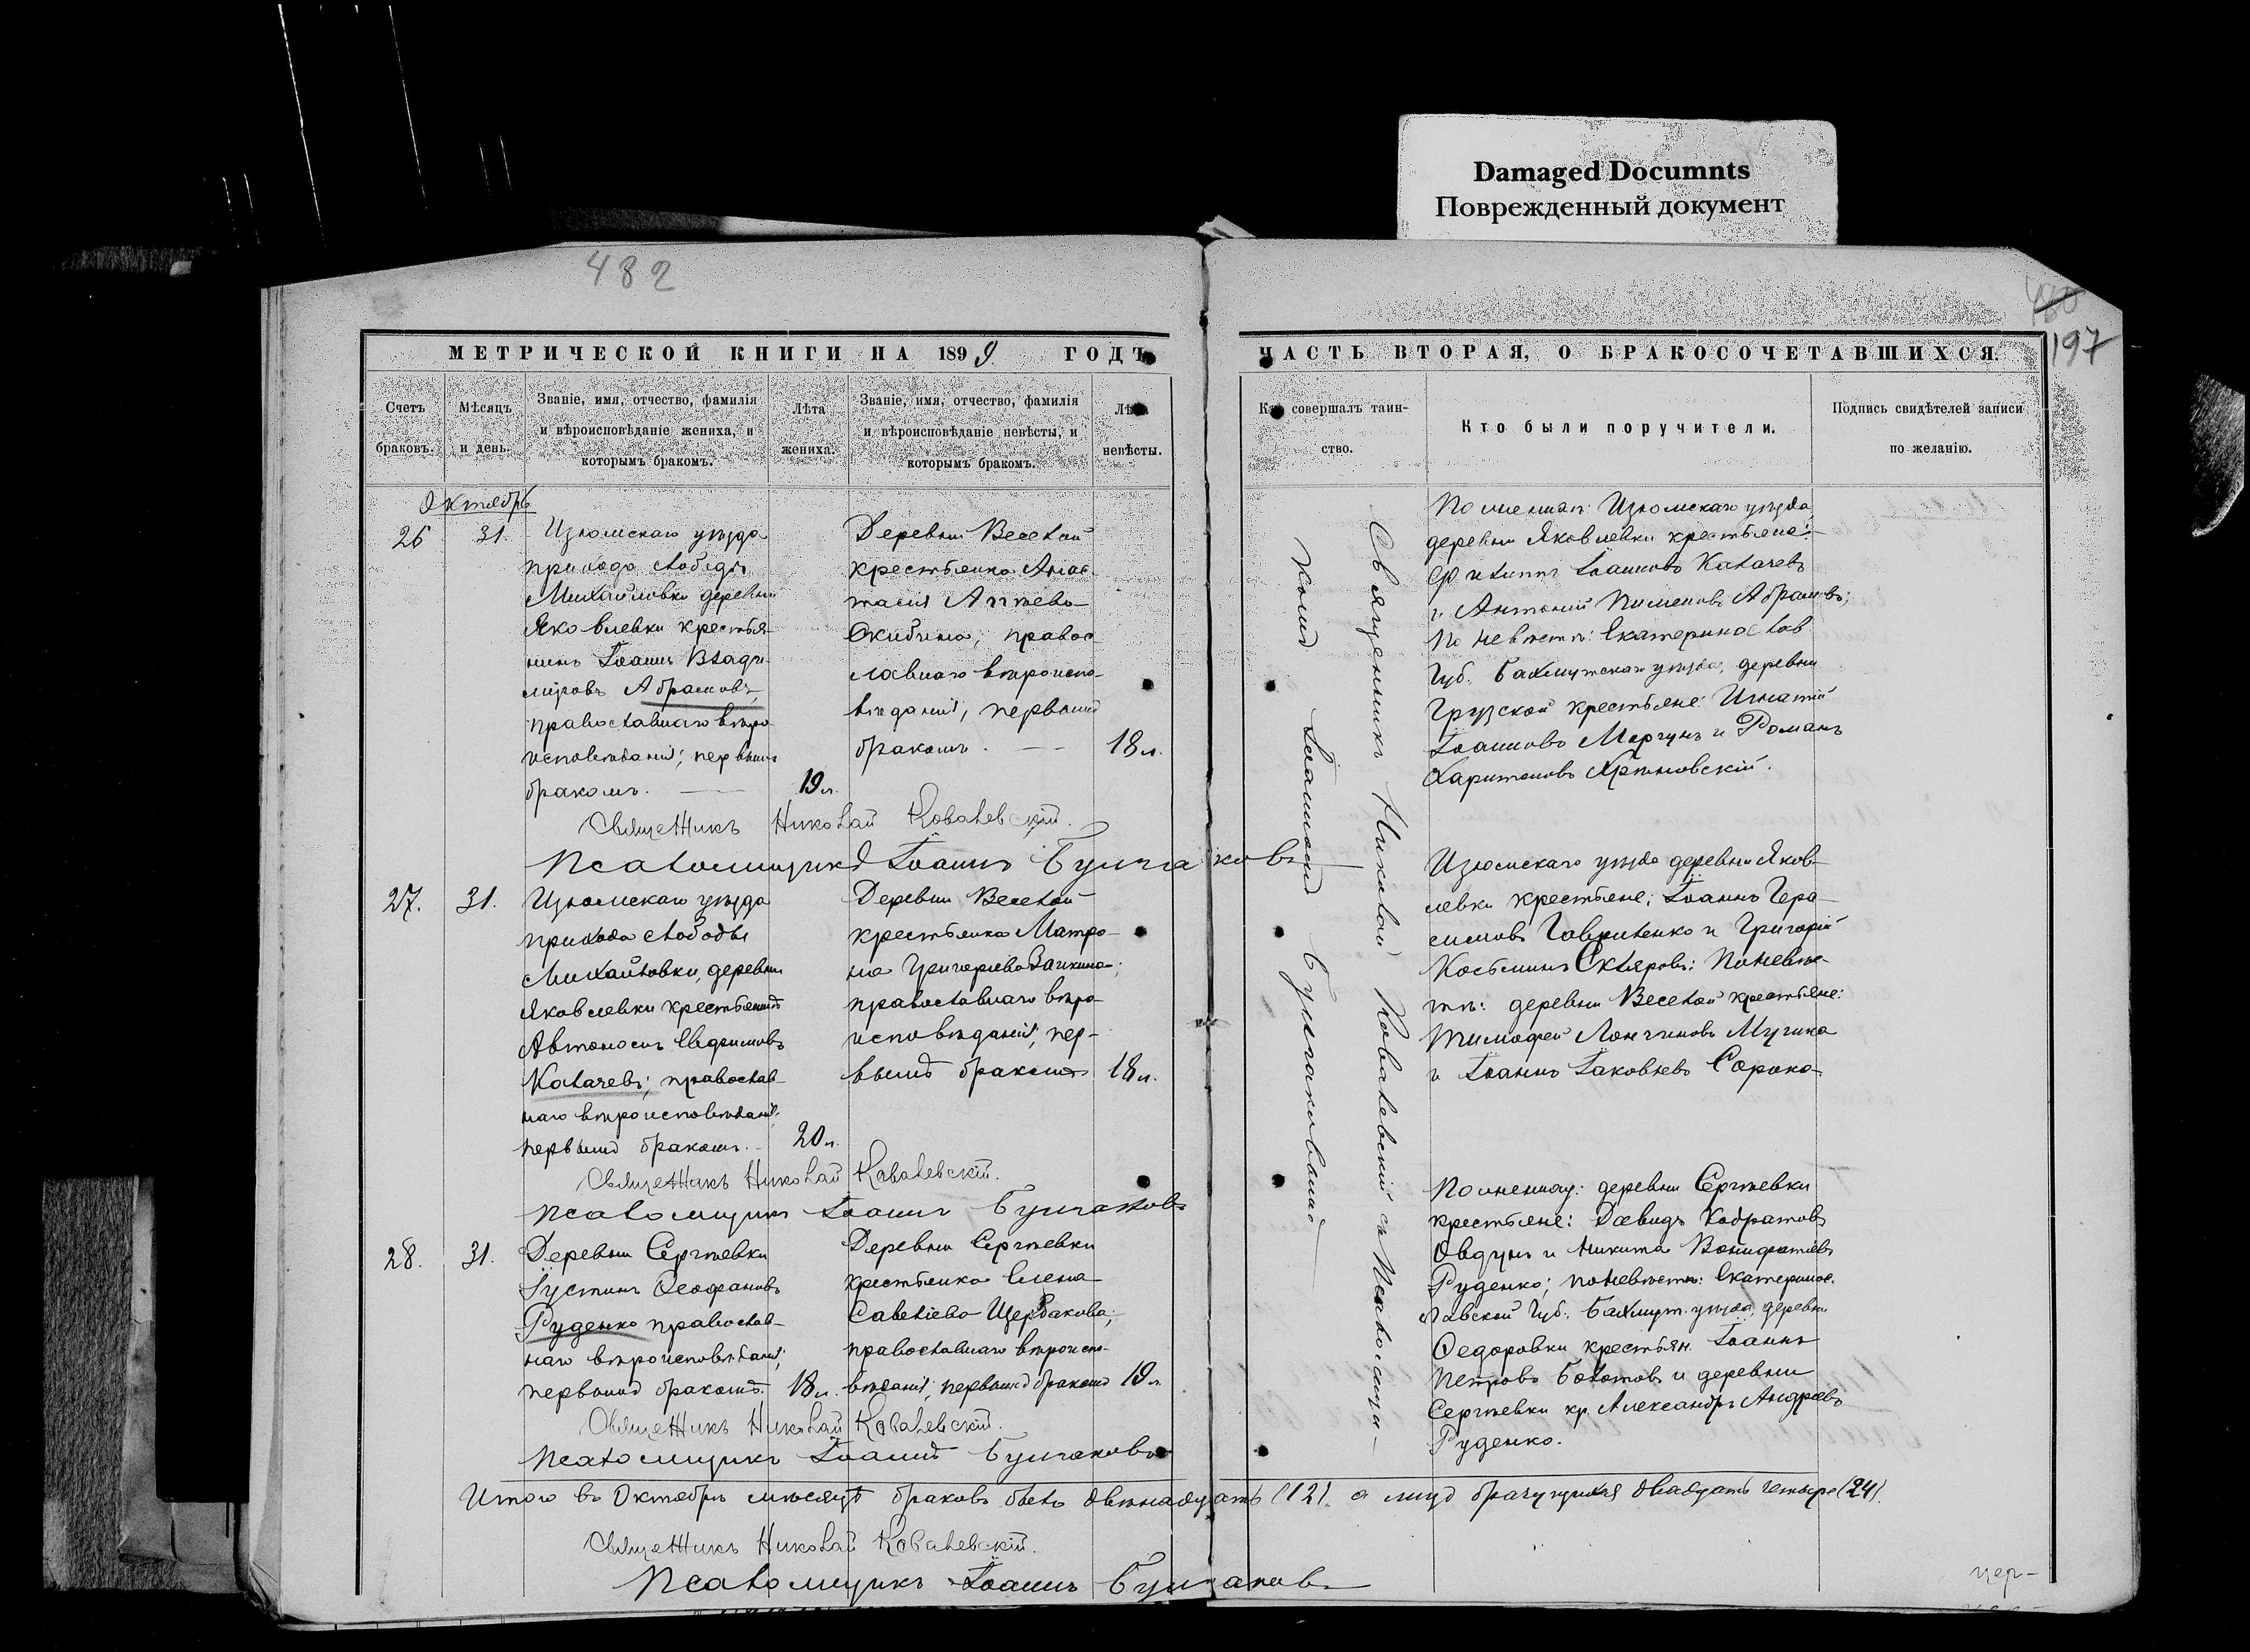 Damaged Documnts
Поврежденный документ
482
480
197
МЕТРИЧЕСКОЙ КНИГИ НА 1899 ГОДЪ
Счетъ браковъ.
Мѣсяцъ и день.
Званіе, имя, отчество, фамилія
и вѣроисповѣданіе жениха, и
которымъ бракомъ.
Лѣта жениха.
Званіе, имя, отчество, фамилія
и вѣроисповѣданіе невѣсты, и
которымъ бракомъ.
Лѣта невѣсты.
Октябрь
26
31.
Изюмскаго уѣзда
прихода слободы
Михайловки деревни
Яковлевки крестья-
нинъ Іоаннъ Влади-
міровъ Абрамовъ,
православнаго вѣро-
исповѣданія; первымъ
бракомъ.
19 л.
Деревни Веселой
крестьянка Анас-
тасія Агѣева
Скибина; правос-
лавнаго вѣроиспо-
вѣданія, первымъ
бракомъ.
18 л.
Священникъ Николай Ковалевскій.
Псаломщикъ Іоаннъ Булгаковъ
27.
31.
Изюмскаго уѣзда
прихода слободы
Михайловки, деревни
Яковлевки крестьянинъ
Автономъ Евфимовъ
Калачевъ; православ-
наго вѣроисповѣданія,
первымъ бракомъ.
20 л.
Деревни Веселой
крестьянка Матро-
на Григорьева Заикина;
православнаго вѣро-
исповѣданія, пер-
вымъ бракомъ
18 л.
Священникъ Николай Ковалевскій.
Псаломщикъ Іоаннъ Булгаковъ
28.
31.
Деревни Сергѣевки
Іустинъ Ѳеофановъ
Руденко православ-
наго вѣроисповѣданія;
первымъ бракомъ.
18 л.
Деревни Сергѣевки
крестьянка Елена
Савеліева Щербакова;
православнаго вѣроиспо-
вѣданія; первымъ бракомъ
19 л.
Священникъ Николай Ковалевскій.
Псаломщикъ Іоаннъ Булгаковъ
ЧАСТЬ ВТОРАЯ, О БРАКОСОЧЕТАВШИХСЯ.
Кто совершалъ таин-
ство.
Кто были поручители.
Подпись свидѣтелей записи
по желанію.
Священникъ Николай Ковалевскій съ Псаломщи-
комъ Іоанномъ Булгаковымъ
По женихѣ: Изюмскаго уѣзда
деревни Яковлевки крестьяне:
Филиппъ Іоанновъ Калачевъ
и Антоній Пименовъ Абрамовъ;
По невѣстѣ: Екатеринослав.
Губ. Бахмутскаго уѣзда, деревни
Грузской крестьяне: Игнатій
Іоанновъ Моргунъ и Романъ
Харитоновъ
Изюмскаго уѣзда деревни Яков-
левки крестьяне; Іоаннъ Гера-
симовъ Гавриленко и Григорій
Косьминъ Скляровъ: По невѣс-
тѣ: деревни Веселой крестьяне:
Тимофей Лонгиновъ Мугика
и Іоаннъ Іаковлевъ Сорока
По жениху: деревни Сергѣевки
крестьяне: Давидъ Кодратовъ
Овдунъ и Никита Вонифатіевъ
Руденко; по невѣстѣ: Екатеринос-
лавской Губ. Бахмут. уѣзда, деревни
Ѳедоровки крестьян. Іоаннъ
Петровъ Болотовъ и деревни
Сергѣевки кр. Александръ Андреевъ
Руденко.
Итого въ Октябрѣ мѣсяцѣ браковъ было двѣнадцать (12). а лицъ брачущихся двадцать четыре (24).
Священникъ Николай Ковалевскій.
Псаломщикъ Іоаннъ Булгаковъ
цер-